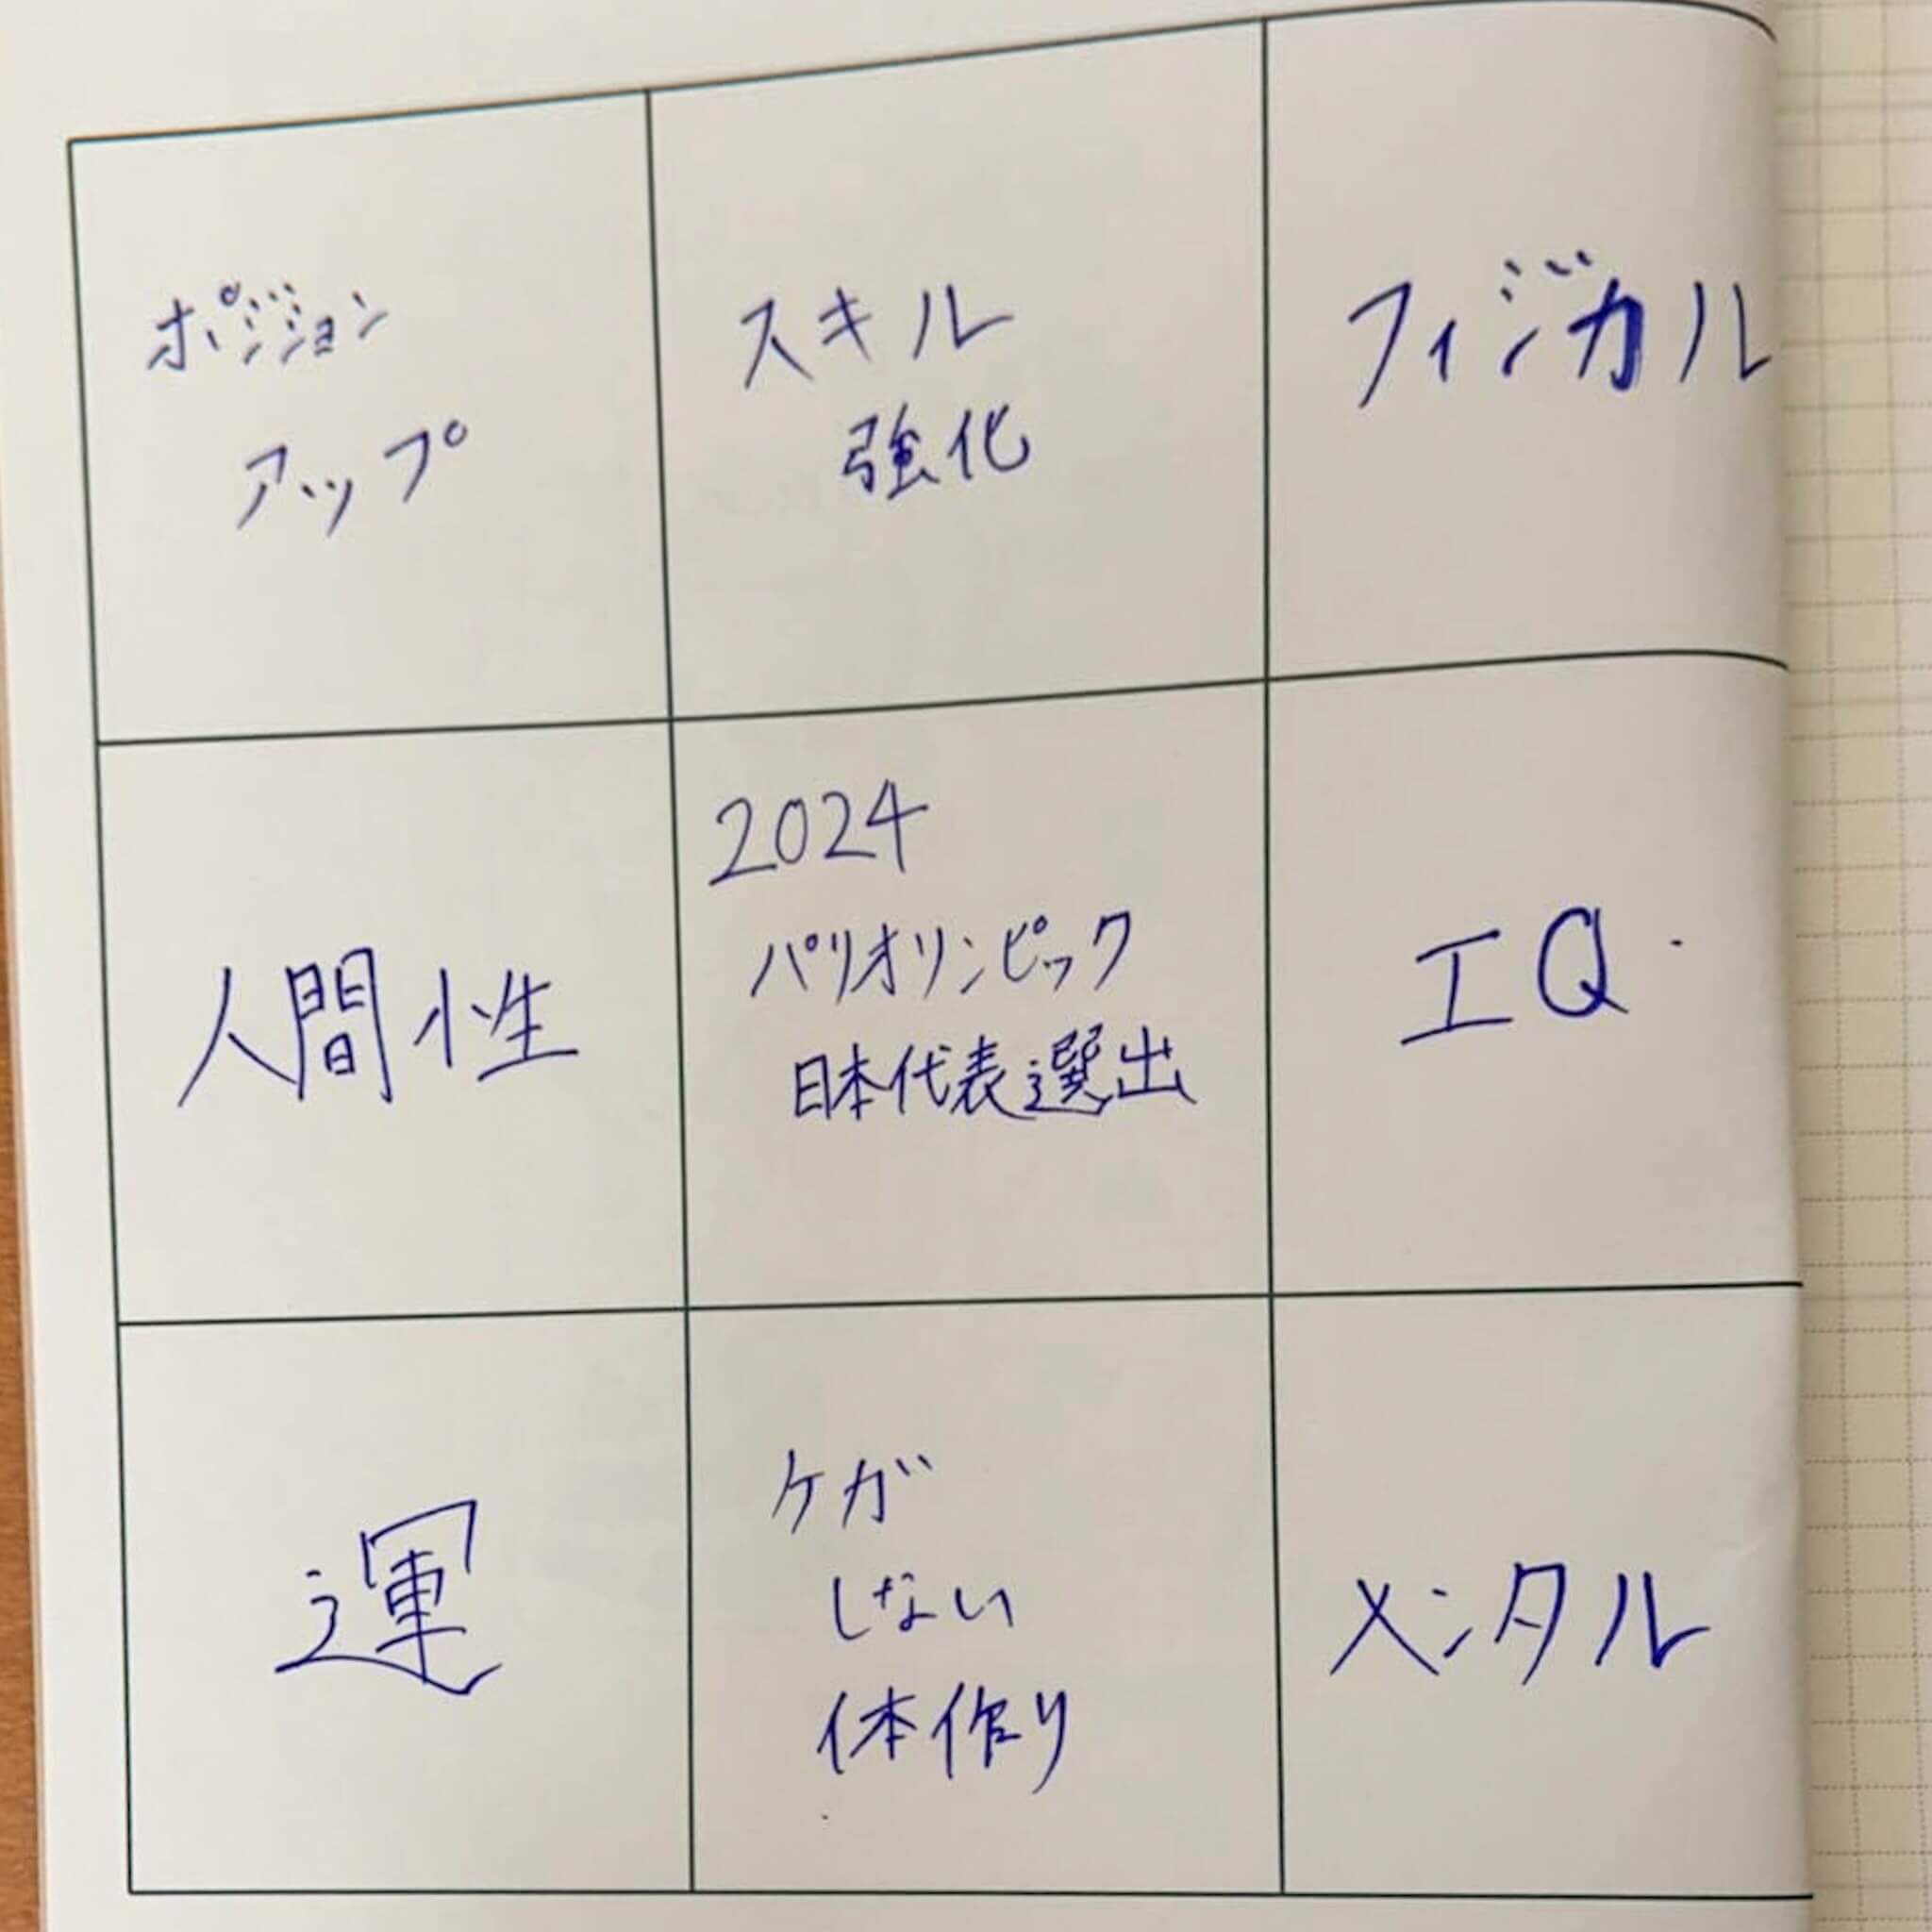 ポジション
アップ
スキル
強化
フィジカル
人間性
2024
パリオリンピック
日本代表選出
IQ
運
ケガ
しない
体作り
メンタル